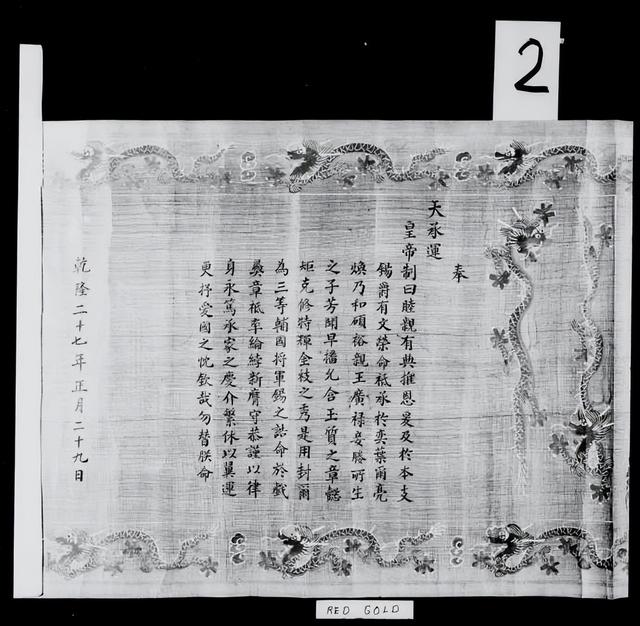 2
奉
天承運
皇帝制曰睦親有典推恩爰及於本支
錫爵有文榮命祗承於奕葉爾亮
煥乃和碩裕親王廣祿妾媵所生
之子芳聞早播允含玉質之章懿
矩克修特禪金枝之秀是用封爾
為三等輔國將軍錫之誥命於戲
彝章祗率綸綍新膺守恭謹以律
身永篤承家之慶介繁休以翼運
更抒愛國之忱欽哉勿替朕命
乾隆二十七年正月二十九日
RED GOLD